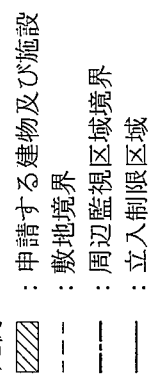 : 申請する建物及び施設
: 敷地境界
: 周辺監視区域境界
: 立入制限区域